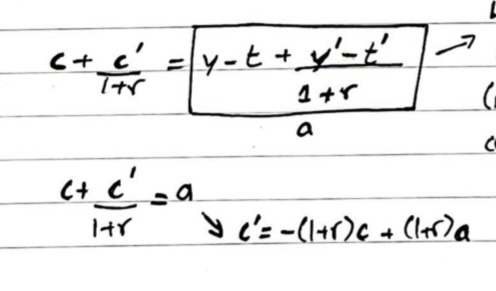 c + c'/(1+r) = y - t + (y' - t')/(1+r) →
a
c + c'/(1+r) = a
↘ c' = -(1+r)c + (1+r)a